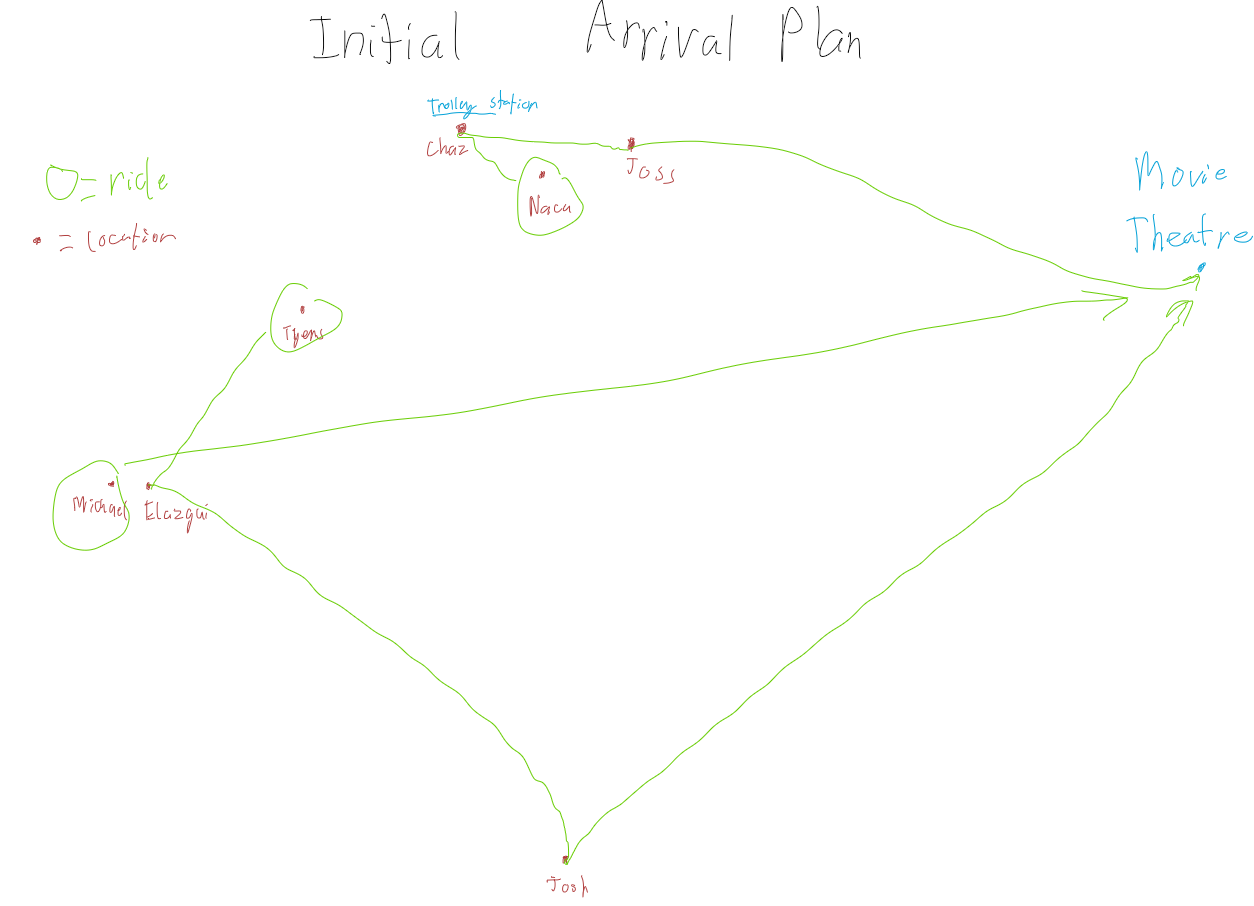 Initial Arrival Plan
Trolley station
Chaz
Joss
Nacu
Movie
Theatre
O = ride
• = location
Tyens
Michael
Elazqui
Josh